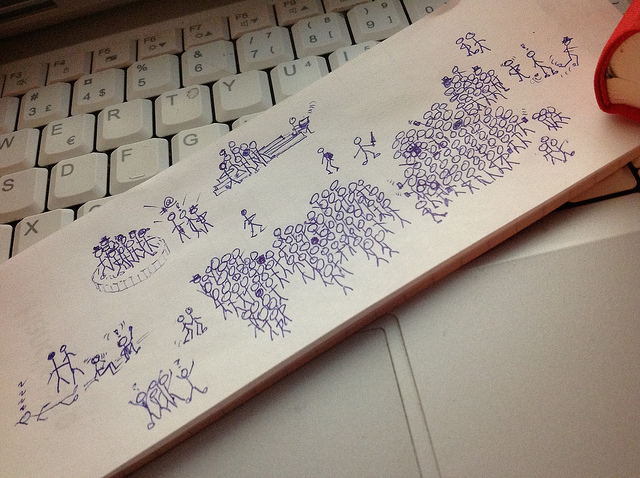 F3 F4 F5 F6 F7 F8 F9
# 3 £ ¤ 4 $ % 5 & 6 / 7 { ( 8 [ ) 9 ]
W E € R T Y U I
S D F G
X
zzzz